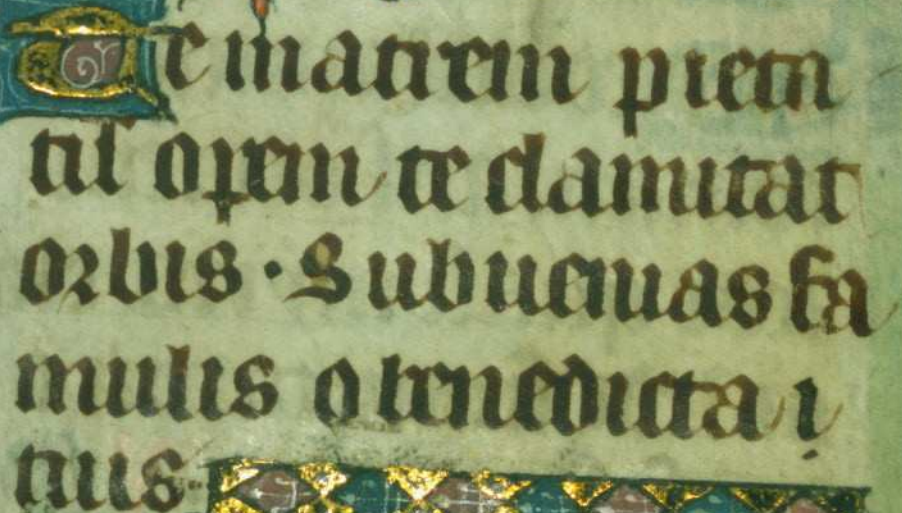 Te matrem pieta
tis opem te clamitat
orbis · Subuenias fa
mulis o benedicta i
tuis